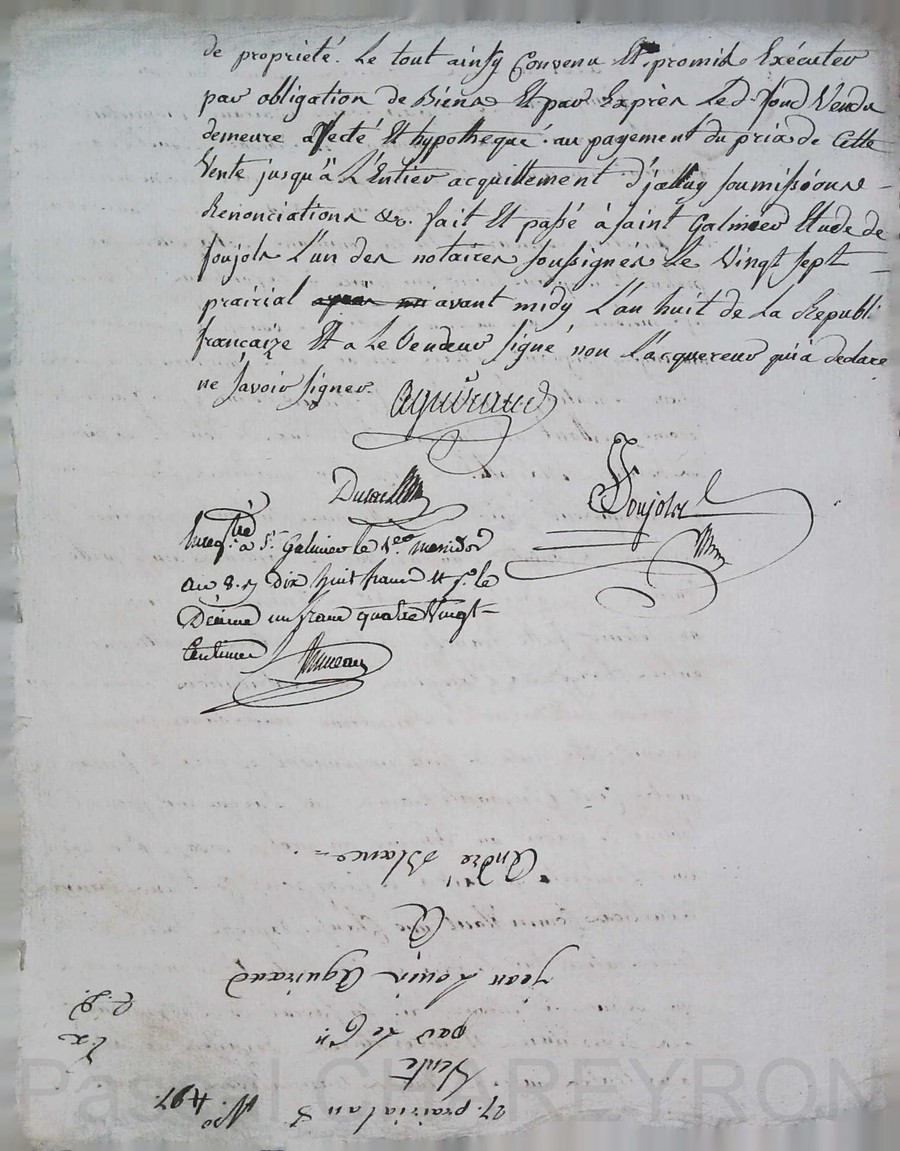 de propriété. Le tout ainsy Convenu Et promis Exécuter
par obligation de Biens Et par Exprès Led. fond Vendu
demeure afecté Et hypothequé au payement du prix de Cette
Vente jusqu'à L'Entier acquittement d'jcelluy soumissions
Renonciations &c. fait Et passé à saint Galmier Etude de
soujols L'un des notaires soussignés Le Vingt sept
prairial avant midy L'an huit de La Republi.
françaize Et a Le Vendeur signé non L'acquereur qui a declaré
ne savoir signer.
Aguiraud
Soujols
Enregtré à St. Galmier le 1er. messidor
an 8. R dix huit francs et pr. le
Décime un franc quatre Vingt
Centimes
27. prairial an 8 No. 497.
Vente
par Le Cn.
jean Louis Aguiraud
A
André Blanc
Ex